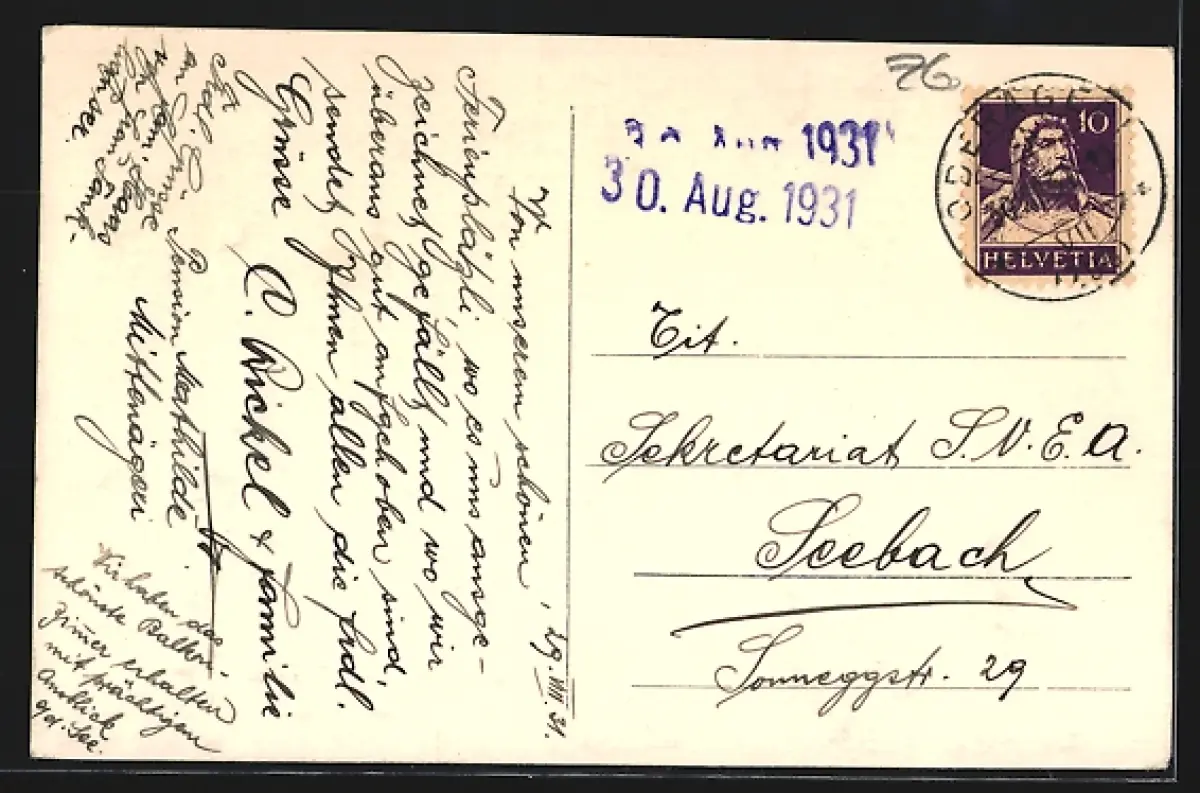 29. VIII. 31.
Von unserem schönen
Ferienpläzli, wo es uns ausge-
zeichnet gefällt und wo wir
überaus gut aufgehoben sind,
sendet Ihnen allen die frdl.
Grüsse
O. Bickel & Familie
Pension Mathilde
Mittenägeri
Wir haben das
schönste Balkon-
zimer erhalten
mit prächtigem
Ausblick
a/d. See.
76
30. Aug. 1931
1931
30. Aug. 1931
OBERÄGERI
10
HELVETIA
Tit.
Sekretariat S.V.E.A.
Seebach
Sonneggstr. 29